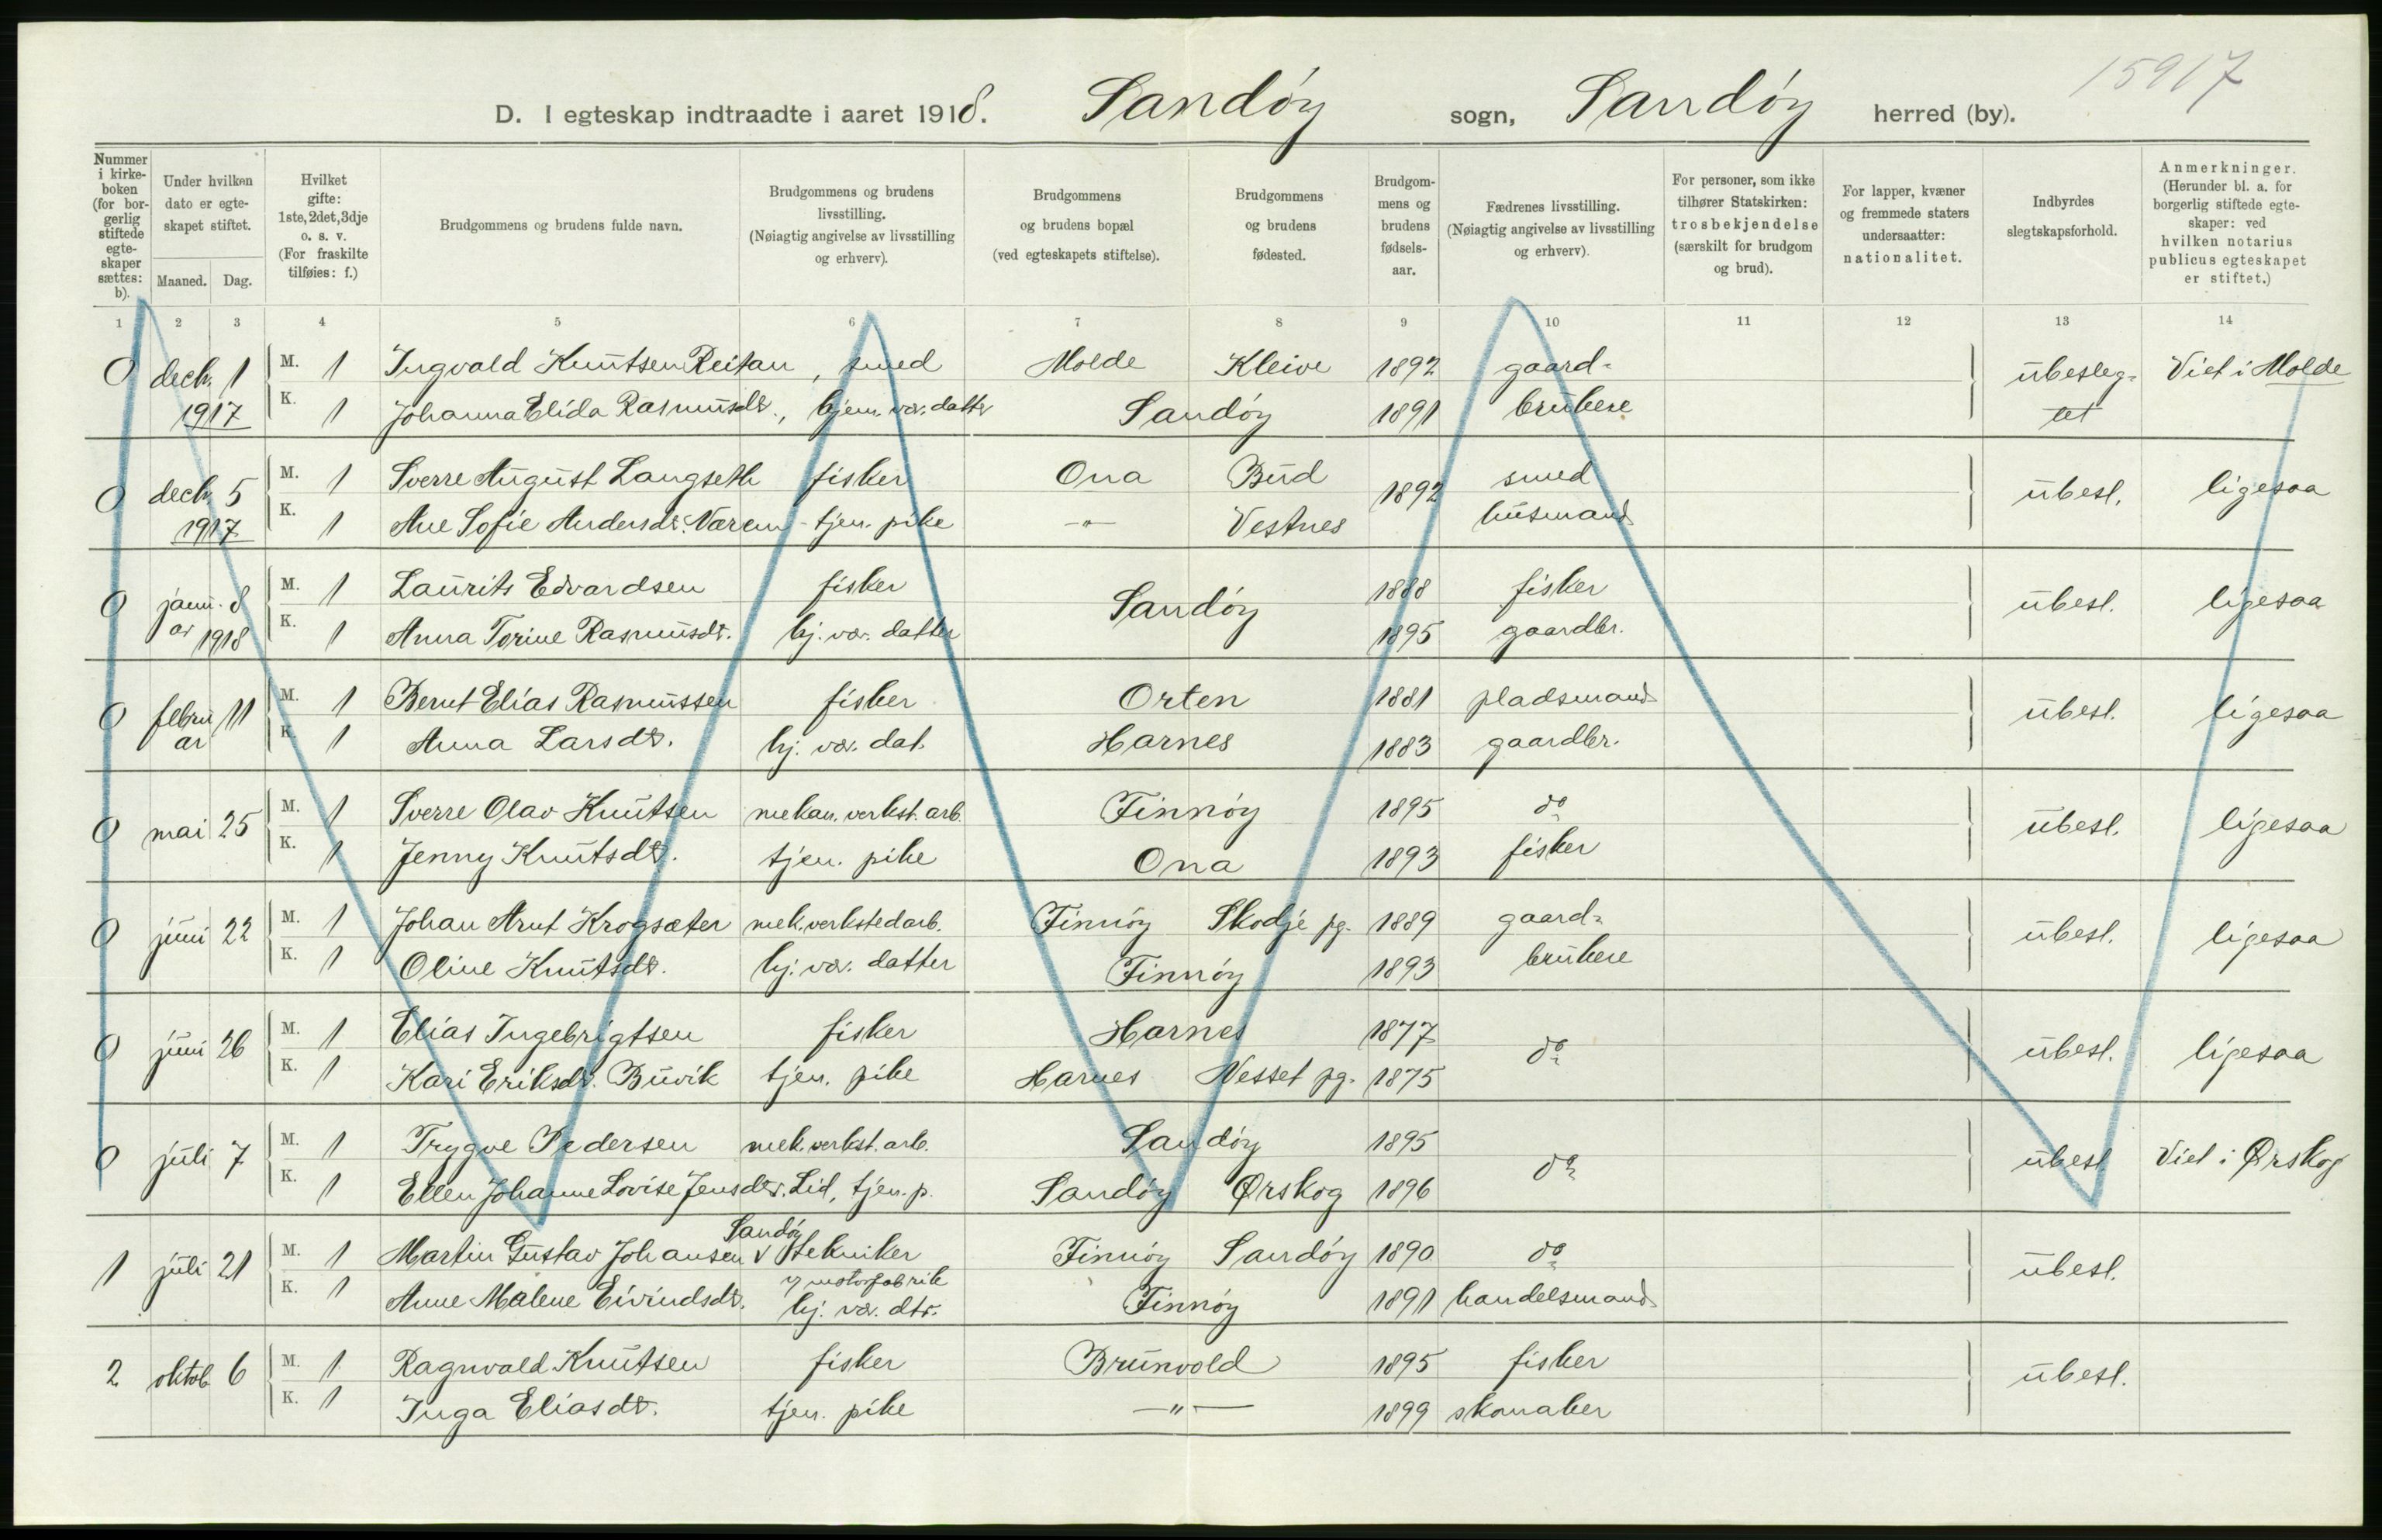 15917
D. I egteskap indtraadte i aaret 1918. Sandöy sogn, Sandöy herred (by).
Nummer i kirkeboken (for borgerlig stiftede egteskaper sættes: b).
Under hvilken dato er egteskapet stiftet.
Maaned. Dag.
Hvilket gifte: 1ste, 2det, 3dje o. s. v. (For fraskilte tilføies: f.)
Brudgommens og brudens fulde navn.
Brudgommens og brudens livsstilling. (Nøiagtig angivelse av livsstilling og erhverv).
Brudgommens og brudens bopæl (ved egteskapets stiftelse).
Brudgommens og brudens fødested.
Brudgommens og brudens fødselsaar.
Fædrenes livsstilling. (Nøiagtig angivelse av livsstilling og erhverv).
For personer, som ikke tilhører Statskirken: trosbekjendelse (særskilt for brudgom og brud).
For lapper, kvæner og fremmede staters undersaatter: nationalitet.
Indbyrdes slegtskapsforhold.
Anmerkninger. (Herunder bl. a. for borgerlig stiftede egteskaper: ved hvilken notarius publicus egteskapet er stiftet.)
1 2 3 4 5 6 7 8 9 10 11 12 13 14
0 decb. 1 M. 1 Ingvald Knutsen Reitan, smed Molde Kleive 1892 gaard- ubesleg- Viet i Molde
1917 K. 1 Johanna Elida Rasmusdt., hjem. vær. datter Sandöy 1891 brukere tet
0 decb. 5 M. 1 Sverre August Langseth fisker Ona Bud 1892 smed ubesl. ligesaa
1917 K. 1 Ane Sofie Andersdt. Narem - tjen. pike -"- Vestnes husmand
0 janu- 8 M. 1 Laurits Edvardsen fisker Sandöy 1888 fisker ubesl. ligesaa
ar 1918 K. 1 Anna Torine Rasmusdt. hj. vær. datter 1895 gaardbr.
0 febru 11 M. 1 Bernt Elias Rasmussen fisker Orten 1881 pladsmand ubesl. ligesaa
ar K. 1 Anna Larsdt. hj. vær. dat. Harnes 1883 gaardbr.
0 mai 25 M. 1 Sverre Olav Knutsen mekan. verkst. arb. Finnöy 1895 do ubesl. ligesaa
K. 1 Jenny Knutsdt. tjen. pike Ona 1893 fisker
0 juni 22 M. 1 Johan Arnt Krogsæter mek. verksted arb. Finnöy Skodje pg. 1889 gaard- ubesl. ligesaa
K. 1 Oline Knutsdt. hj. vær. datter Finnöy 1893 brukere
0 juni 26 M. 1 Elias Ingebrigtsen fisker Harnes 1877 do ubesl. ligesaa
K. 1 Kari Eriksdt. Buvik tjen. pike Harnes Nesset pg. 1875
0 juli 7 M. 1 Trygve Pedersen mek. verkst. arb. Sandöy 1895 do ubesl. Viet i Ørskog
K. 1 Ellen Johanne Lovise Jensdtr. Lid, tjen. p. Sandöy Ørskog 1896
Sandöy
1 juli 21 M. 1 Martin Gustav Johansen v tekniker Finnöy Sandöy 1890 do ubesl.
motorfabrik
K. 1 Anne Malene Eivindsdt. hj. vær. dtr. Finnöy 1891 handelsmand
2 oktob. 6 M. 1 Ragnvald Knutsen fisker Brunvold 1895 fisker ubesl.
K. 1 Inga Eliasdt. tjen. pike -"- 1899 skomaker